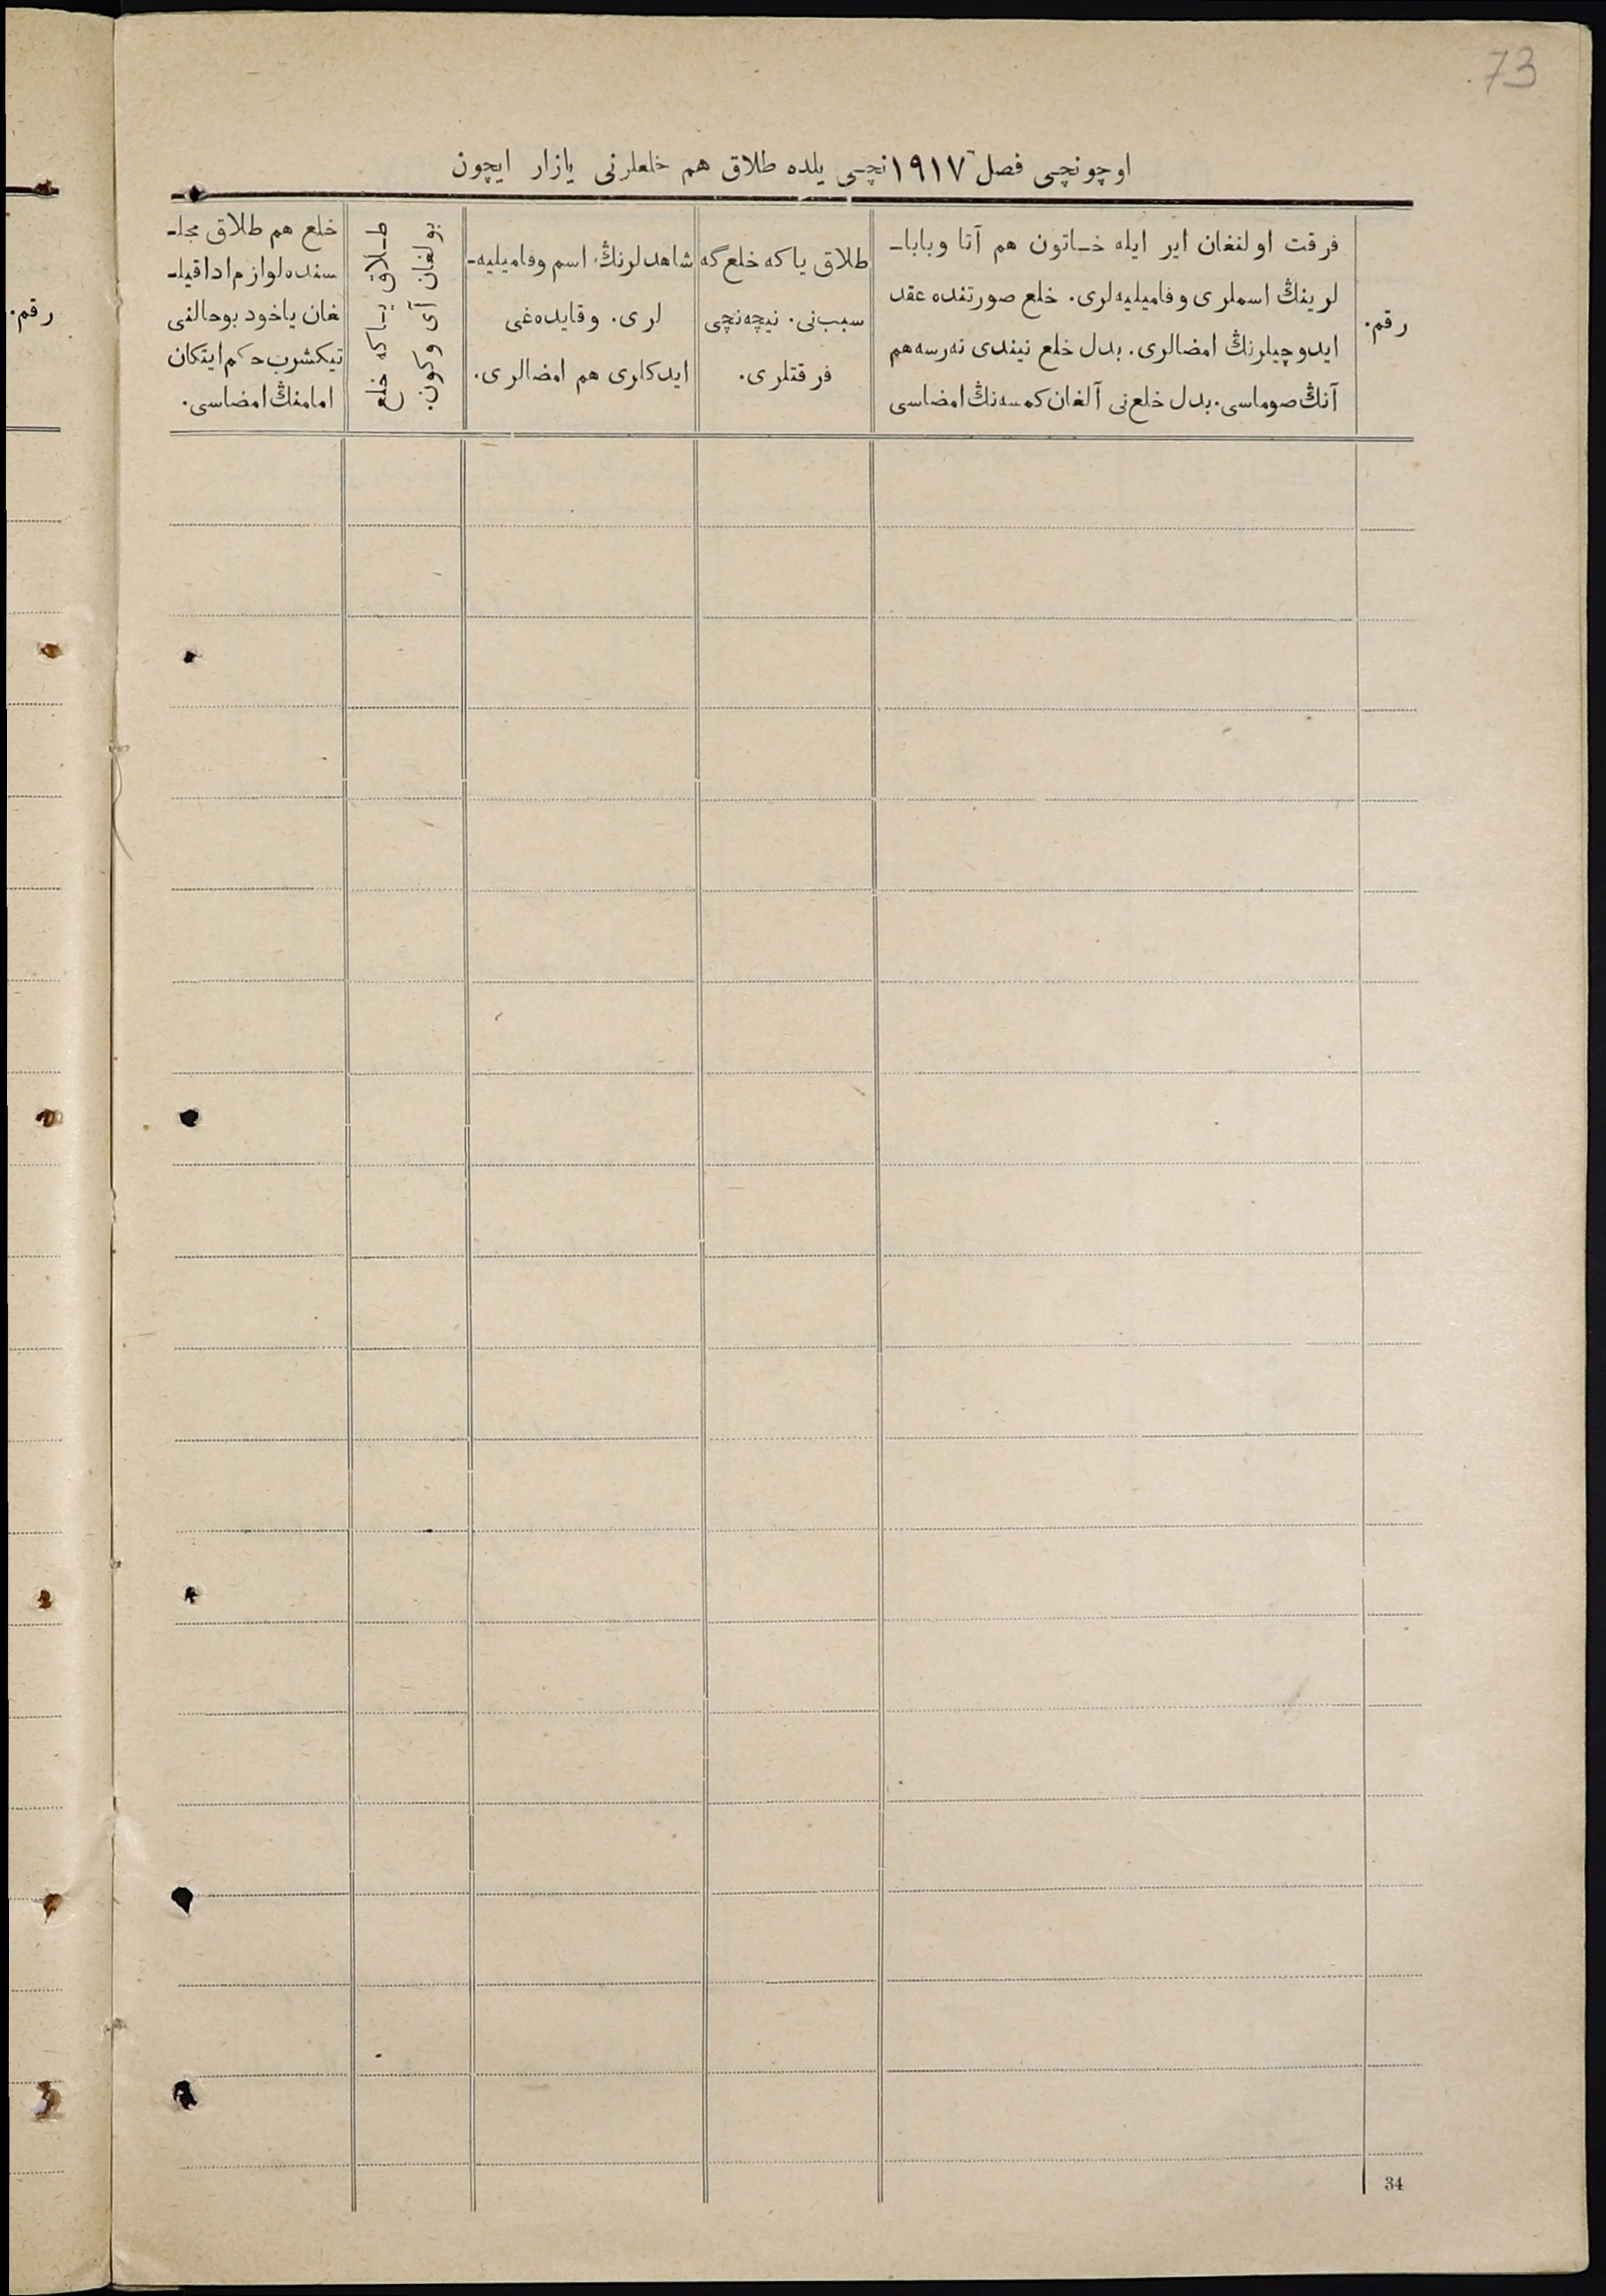 73
اوچونچى فصل ١٩١٧ نچى يلده طلاق هم خلعلرنى يازار ايچون
رقم.
فرقت اولنغان اير ايله خاتون هم آتا وبابا-
لرينڭ اسملرى وفاميليه‌لرى. خلع صورتنده عقد
ايدوچيلرنڭ امضالرى. بدل خلع نيندى نه‌رسه هم
آنڭ صوماسى. بدل خلع‌نى آلغان كمسه‌نڭ امضاسى
طلاق ياكه خلع‌گه
سبب‌نى. نيچه‌نچى
فرقتلرى.
شاهدلرنڭ اسم وفاميليه-
لرى. وقايده‌غى
ايدكلرى هم امضالرى.
طلاق ياكه خلع
بولغان آى وكون.
خلع هم طلاق مجل-
سنده لوازم ادا قيل-
غان ياخود بوحالنى
تيكشرب حكم ايتكان
امامنڭ امضاسى.
رقم.
34